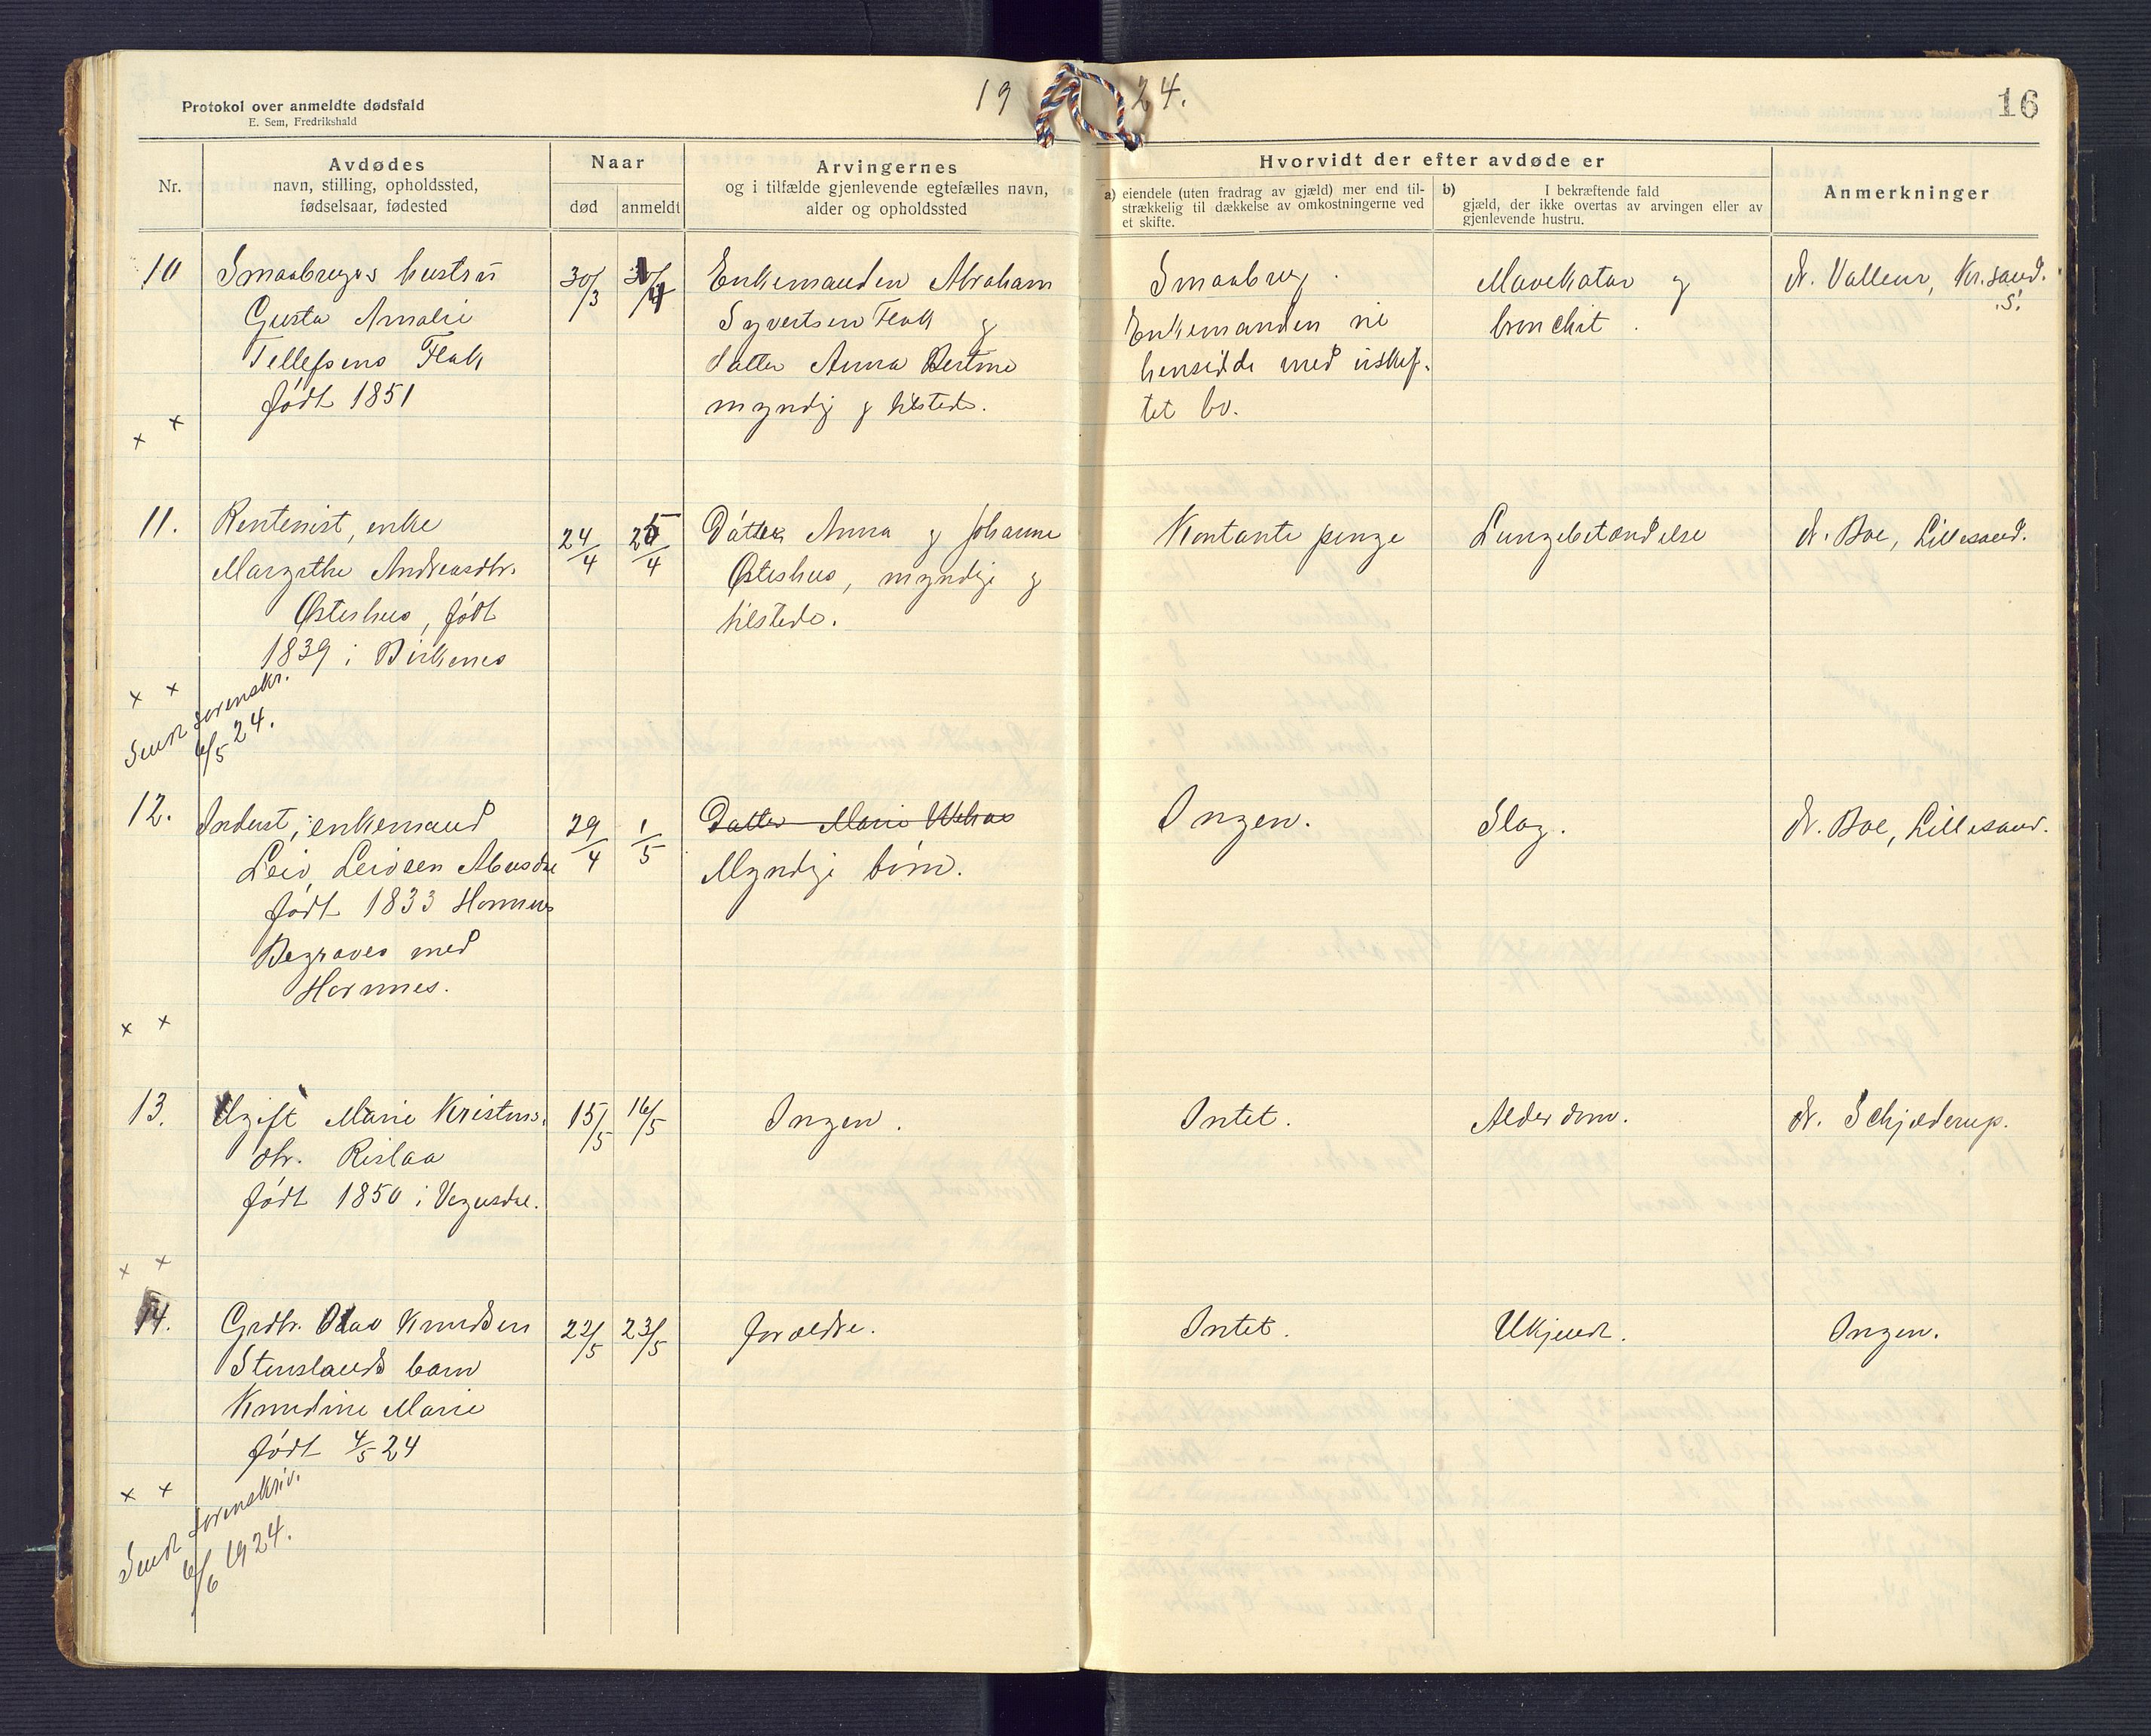 19 24.
16
Protokol over anmeldte dødsfald
E. Sem, Fredrikshald
Nr.
Avdødes
navn, stilling, opholdssted,
fødselsaar, fødested
Naar
død
anmeldt
Arvingernes
og i tilfælde gjenlevende egtefælles navn,
alder og opholdssted
Hvorvidt der efter avdøde er
a) eiendele (uten fradrag av gjæld) mer end til-
strækkelig til dækkelse av omkostningerne ved
et skifte.
b) I bekræftende fald
gjæld, der ikke overtas av arvingen eller av
gjenlevende hustru.
Anmerkninger
10
Smaabrugers hustru
Gusta Amalie
Tellefsens Flak
født 1851
30/3
Enkemanden Abraham
Syvertsen Flak og
datter Anna Bertine
myndig og tilstede.
Smaabrug.
Enkemanden vil
hensidde med uskif-
tet bo.
Mavekatar og
bronchit.
dr. Valleur, Kr.sand.
S.
x x
11.
Rentenist, enke
Margrethe Andreasdtr.
Østerhus, født
1839 i Birkenes
24/4
25/4
Datter Anna og Johanne
Østerhus, myndige og
tilstede.
Kontante penge
Lungebetændelse
dr. Boe, Lillesand.
x x
Sendt sorenskr.
6/5 24.
12.
Inderst, enkemand
Leiv Leivsen
født 1833 Hornnes
Begraves ved
Hornnes.
29/4
1/5
Datter Marie
Myndige børn.
Ingen.
Slag.
dr. Boe, Lillesand.
x x
13.
Ugift Marie Kristens.
dtr. Rislaa
født 1850 i Vegusdal.
15/5
16/5
Ingen.
Intet.
Alderdom.
dr. Schjelderup.
x x
14.
Grdbr. Olav Knudsen
Stenslands barn
Knudine Marie
født 4/5 24
22/5
23/5
foreldre.
Intet.
Ukjendt.
Ingen.
x x
Sendt sorenskriv.
6/6 1924.